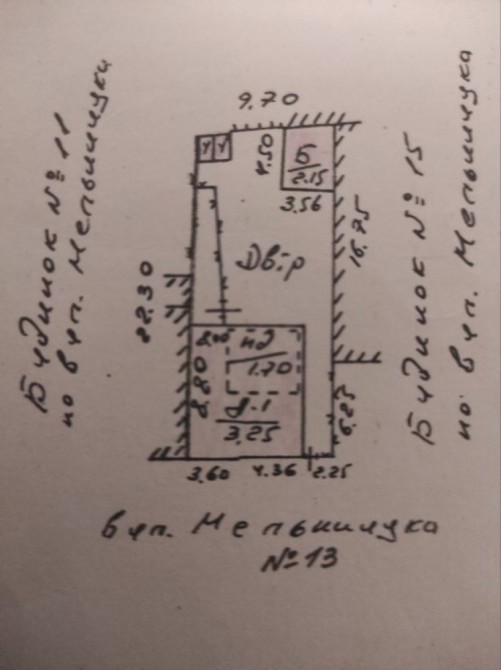 9.70
У У
4.50
Б
2.15
3.56
Двір
16.75
Будинок № 11
по вул. Мельничука
Будинок № 15
по вул. Мельничука
22.30
нд
1.70
8.80
а-1
3.25
6.25
3.60 4.36 2.25
вул. Мельничука
№ 13